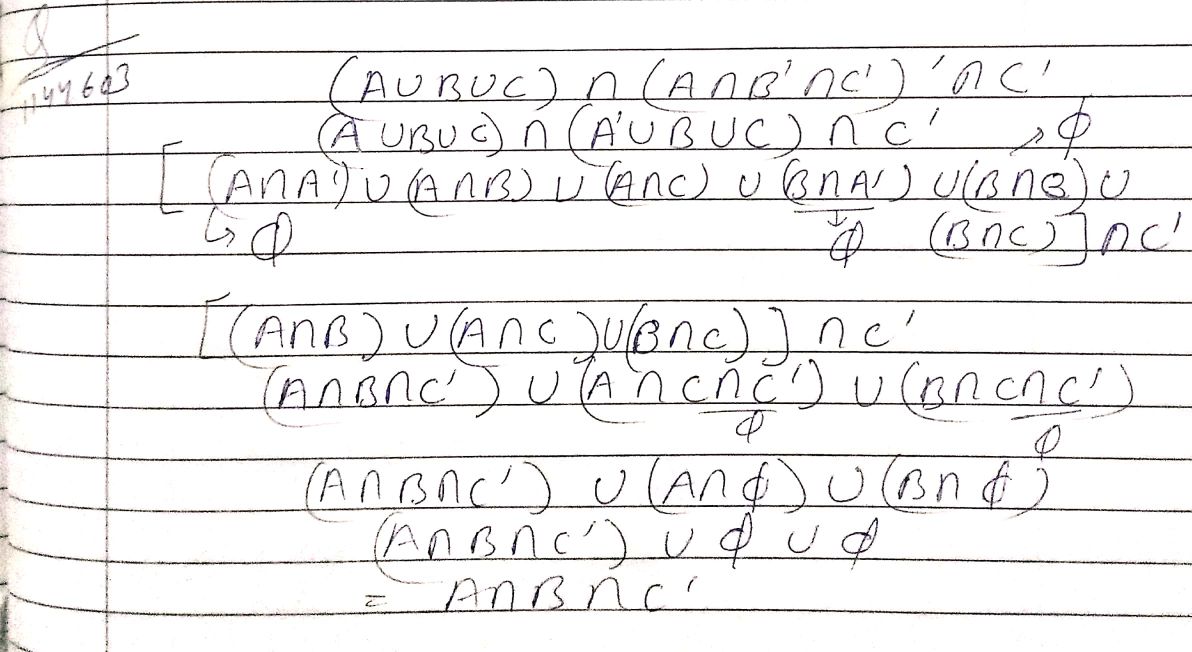 Q
1144603
(A∪B∪C) ∩ (A∩B'∩C')' ∩ C'
(A∪B∪C) ∩ (A'∪B∪C) ∩ C' → ϕ
[(A∩A') ∪ (A∩B) ∪ (A∩C) ∪ (B∩A') ∪ (B∩B) ∪
↳ ϕ ↓ ϕ (B∩C)] ∩ C'
[(A∩B) ∪ (A∩C) ∪ (B∩C)] ∩ C'
(A∩B∩C') ∪ (A∩C∩C') ∪ (B∩C∩C')
ϕ ϕ
(A∩B∩C') ∪ (A∩ϕ) ∪ (B∩ϕ)
(A∩B∩C') ∪ ϕ ∪ ϕ
= A∩B∩C'